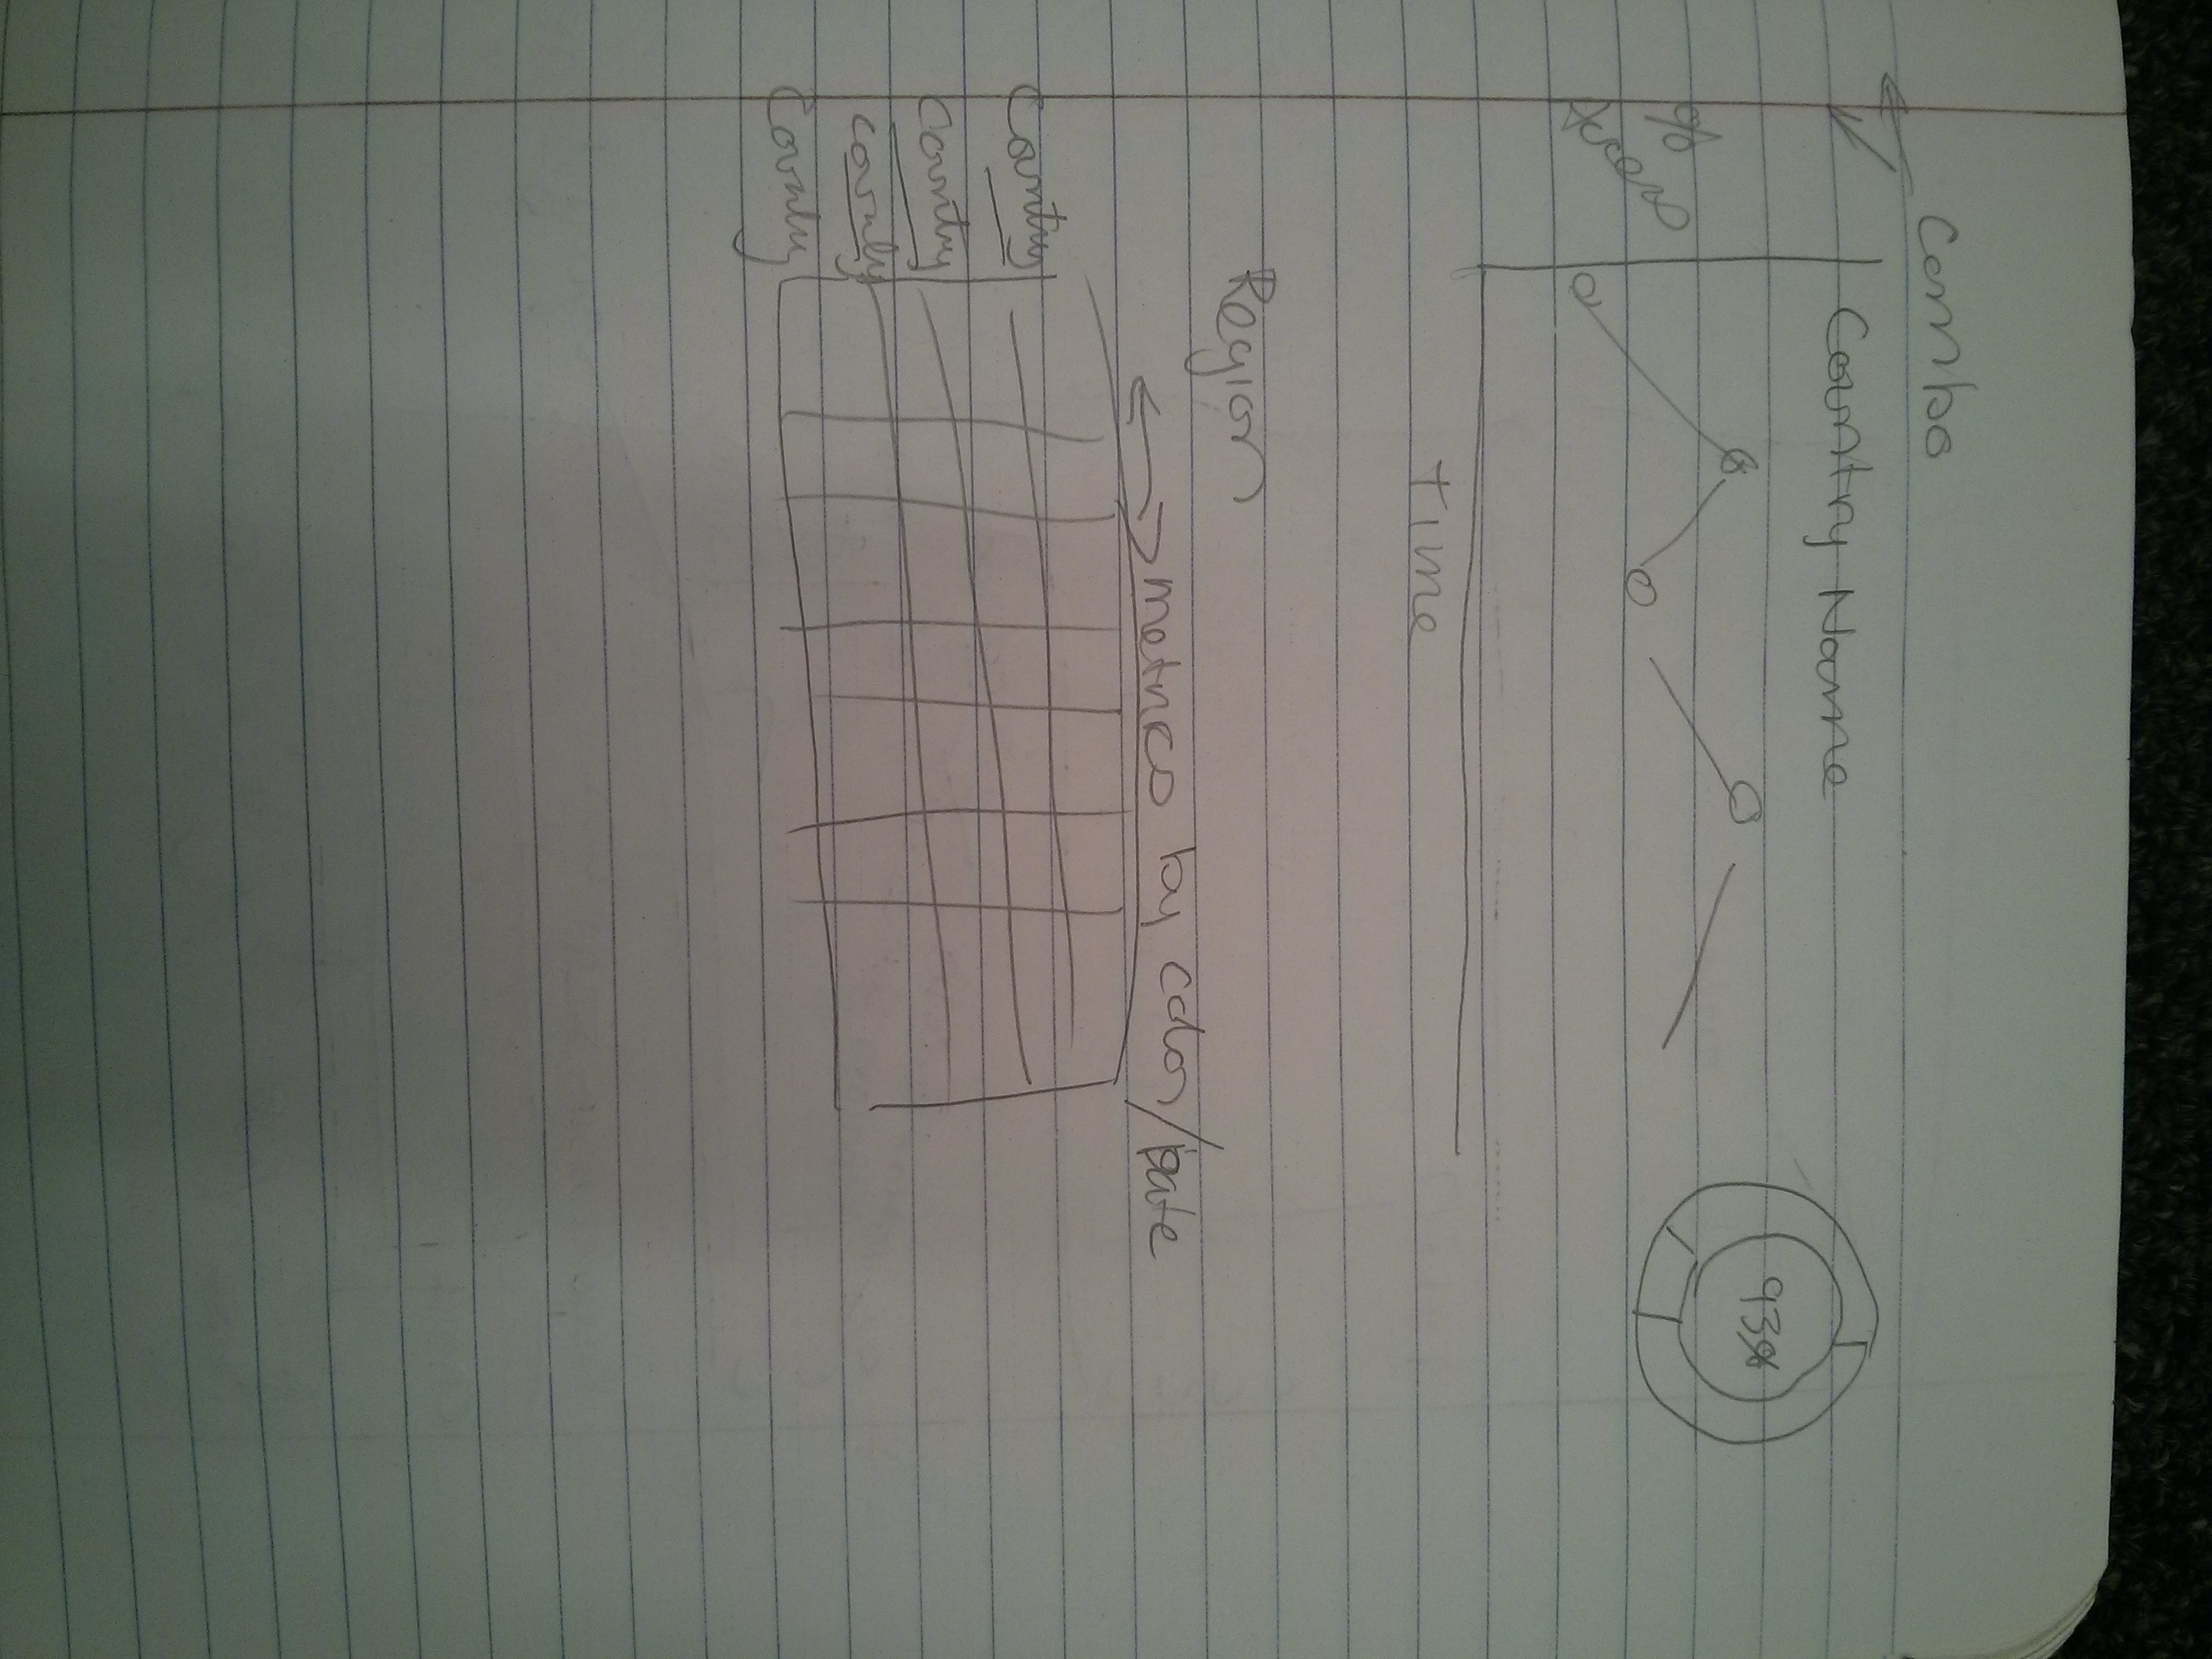 Combo
Country Name
93%
%
Access
Time
Region
metrics by color/
Country
Country
Country
Country